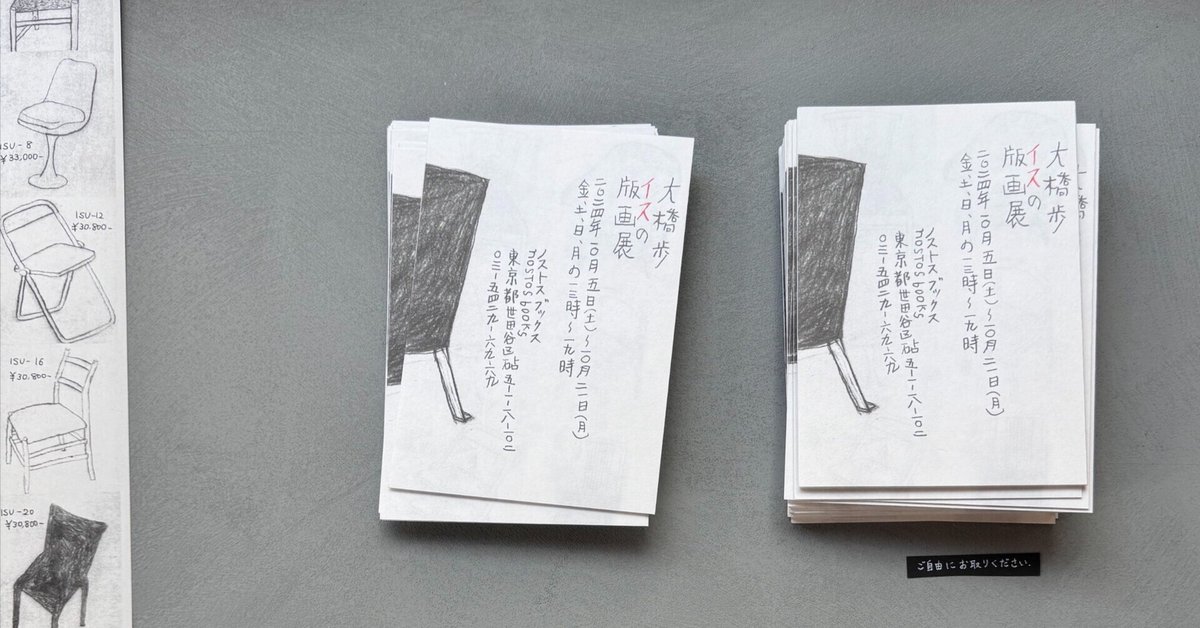 ISU-8
¥33,000-
ISU-12
¥30,800-
ISU-16
¥30,800-
ISU-20
¥30,800-
大橋歩
イスの
版画展
二〇二四年一〇月五日(土)〜一〇月二一日(月)
金、土、日、月の一三時〜一九時
ノストスブックス
nostos books
東京都世田谷区砧五-一-一八-一〇二
〇三-五四二九-六九六九
大橋歩
イスの
版画展
二〇二四年一〇月五日(土)〜一〇月二一日(月)
金、土、日、月の一三時〜一九時
ノストスブックス
nostos books
東京都世田谷区砧五-一-一八-一〇二
〇三-五四二九-六九六九
大橋
ご自由にお取りください.